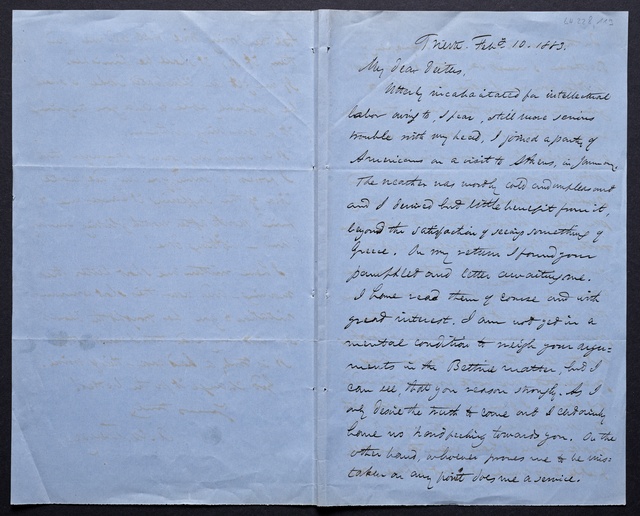 Trieste. Feb. 10. 1883.
My dear Deiters,
Utterly incapacitated for intellectual
labor owing to, I fear, still more serious
trouble with my head, I joined a party of
Americans on a visit to Athens, in January.
The weather was mostly cold and unpleasant
and I derived but little benefit from it,
beyond the satisfaction of seeing something of
Greece. On my return I found your
pamphlet and letter awaiting me.
I have read them of course and with
great interest. I am not yet in a
mental condition to weigh your argu-
ments in the Bettina matter, but I
can see, that you reason strongly. As I
only desire the truth to come out I certainly
have no hard feeling towards you. On the
other hand, whoever proves me to be mis-
taken on any point does me a service.